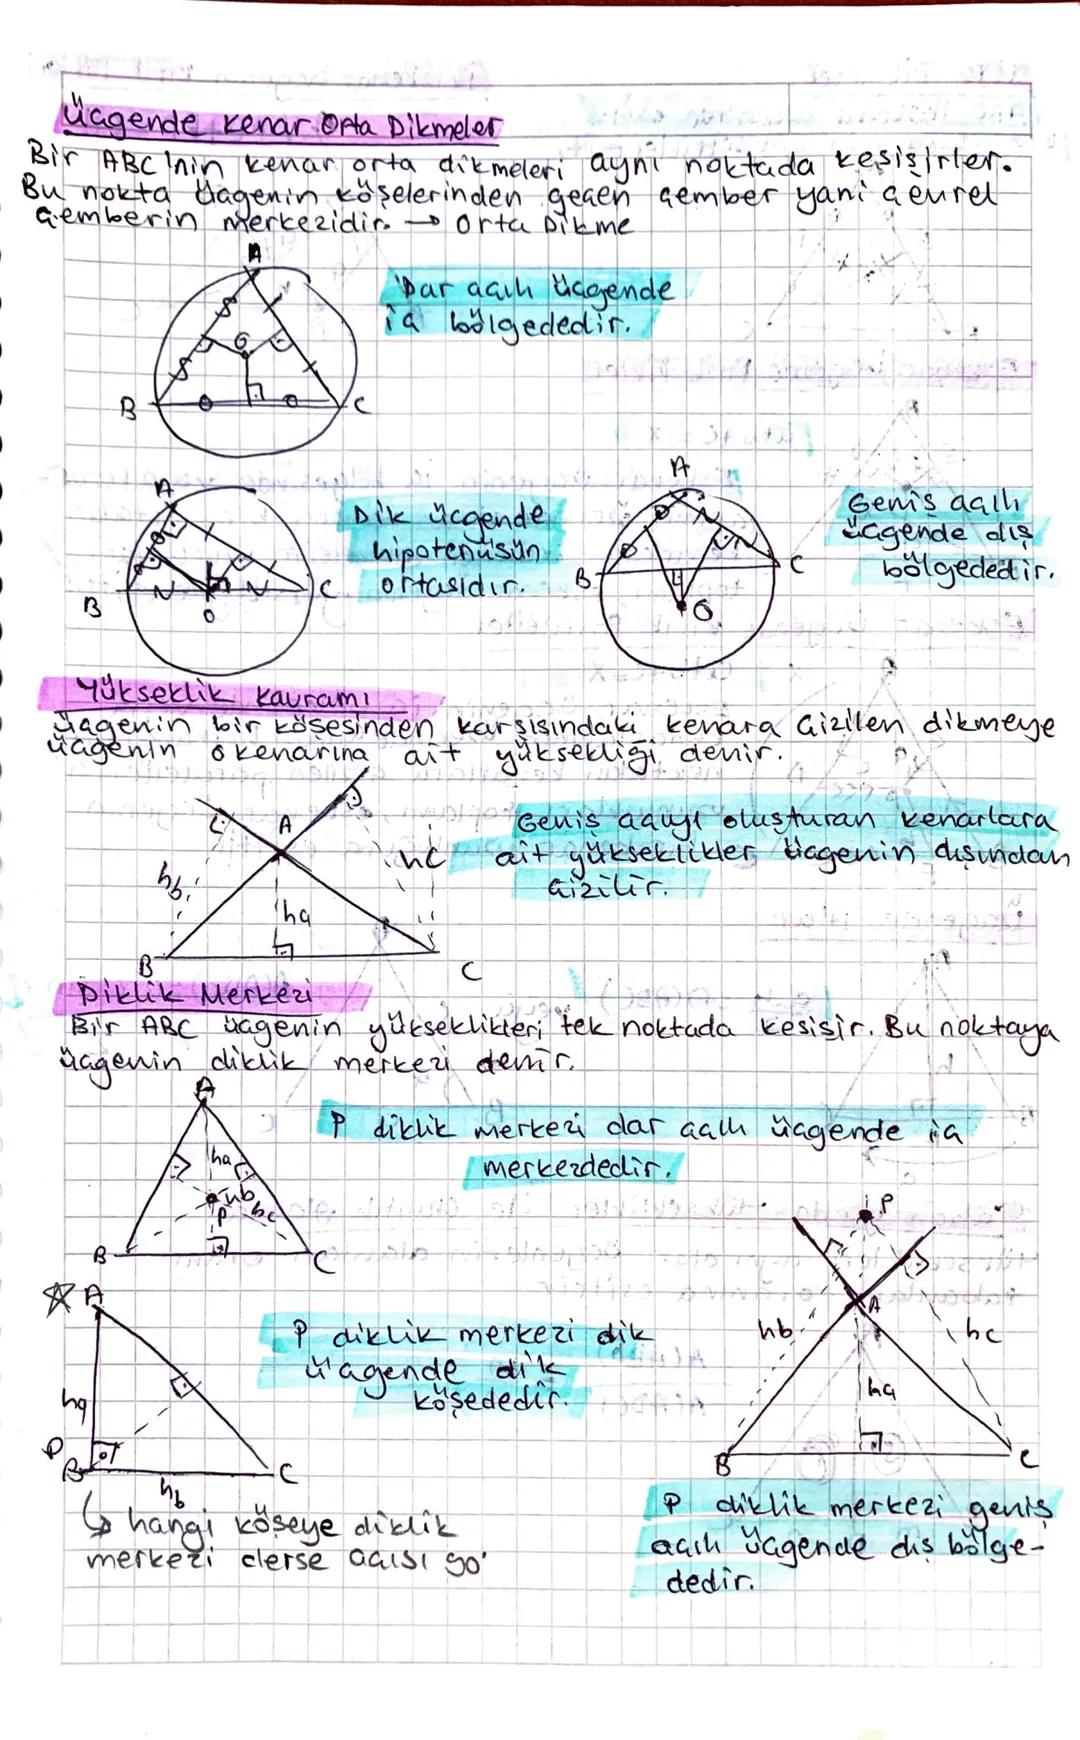 Üçgende Kenar Orta Dikmeler
Bir ABC'nin kenar orta dikmeleri aynı noktada kesişirler.
Bu nokta üçgenin köşelerinden geçen çember yani çevrel
çemberin merkezidir. → Orta Dikme
A
Dar açılı üçgende
iç bölgededir.
G
B
C
A
Dik üçgende
hipotenüsün
ortasıdır.
B
C
O
A
Geniş açılı
üçgende dış
bölgededir.
B
C
O
Yükseklik kavramı
Üçgenin bir köşesinden karşısındaki kenara çizilen dikmeye
üçgenin o kenarına ait yüksekliği denir.
A
Geniş açıyı oluşturan kenarlara
hc
ait yükseklikler üçgenin dışından
çizilir.
hb
ha
B
C
Diklik Merkezi
Bir ABC üçgenin yükseklikleri tek noktada kesişir. Bu noktaya
üçgenin diklik merkezi denir.
A
P diklik merkezi dar açılı üçgende iç
merkezdedir.
ha
hb
hc
P
B
C
A
P diklik merkezi dik
üçgende dik
köşededir.
ha
P
B
C
hb
↳ hangi köşeye diklik
merkezi derse açısı 90°
P
A
hb
hc
ha
B
C
P diklik merkezi geniş
açılı üçgende dış bölge-
dedir.